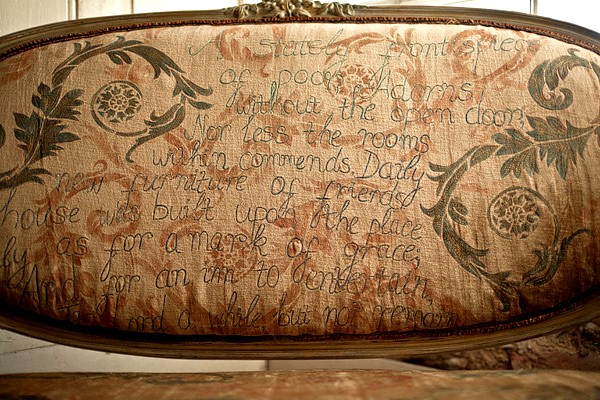 A stately frontispiece
of poor Adorns,
without the open door;
Nor less the rooms
within commends. Daily
new furniture of friends
house was built upon the place
by as for a mark of grace;
And for an inn to entertain,
Lord a while but not remain